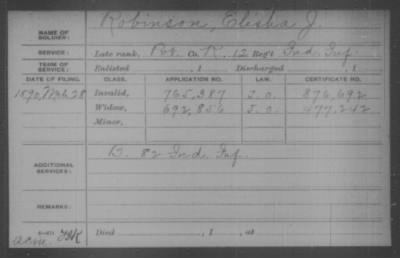 NAME OF SOLDIER: Robinson, Elisha J.
SERVICE: Late rank, Co. K, 12 Reg't Ind. Inf.
TERM OF SERVICE: Enlisted , 1 Discharged , 1
DATE OF FILING. CLASS. APPLICATION NO. LAW. CERTIFICATE NO.
1890, 28 Invalid, 765,387 J.O. 876,692
Widow, 692,856 J.O. 477,242
Minor,
ADDITIONAL SERVICES: D. 82 Ind. Inf.
REMARKS:
Died , 1 , at